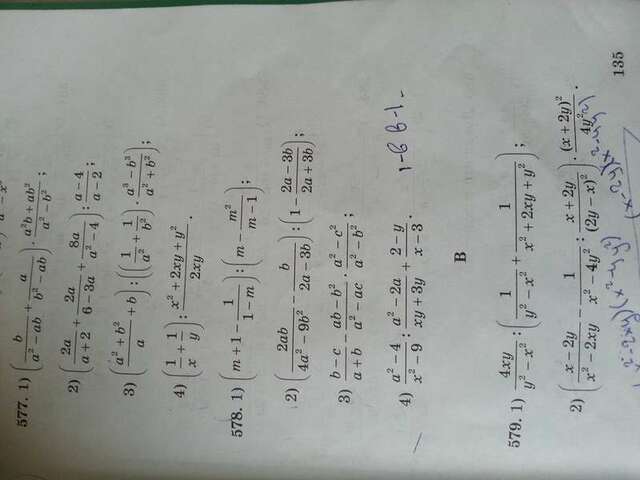 577. 1) (b/(a² − ab) + a/(b² − ab)) · (a²b + ab²)/(a² − b²);
2) (2a/(a + 2) + 2a/(6 − 3a) + 8a/(a² − 4)) : (a − 4)/(a − 2);
3) ((a² + b²)/a + b) : ((1/a² + 1/b²) · (a³ − b³)/(a² + b²));
4) (1/x + 1/y) : (x² + 2xy + y²)/(2xy).
578. 1) (m + 1 − 1/(1 − m)) : (m − m²/(m − 1));
2) (2ab/(4a² − 9b²) − b/(2a − 3b)) : (1 − (2a − 3b)/(2a + 3b));
3) (b − c)/(a + b) − (ab − b²)/(a² − ac) · (a² − c²)/(a² − b²);
4) (a² − 4)/(x² − 9) : (a² − 2a)/(xy + 3y) + (2 − y)/(x − 3).
В
579. 1) 4xy/(y² − x²) : (1/(y² − x²) + 1/(x² + 2xy + y²));
2) ((x − 2y)/(x² − 2xy) − 1/(x² − 4y²) : (x + 2y)/(2y − x)²) · (x + 2y)²/(4y²).
135